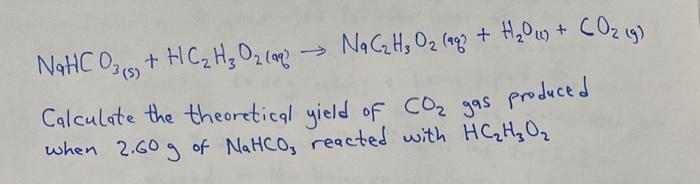 NaHCO₃(s) + HC₂H₃O₂(aq) → NaC₂H₃O₂(aq) + H₂O(l) + CO₂(g)
Calculate the theoretical yield of CO₂ gas produced
when 2.60 g of NaHCO₃ reacted with HC₂H₃O₂